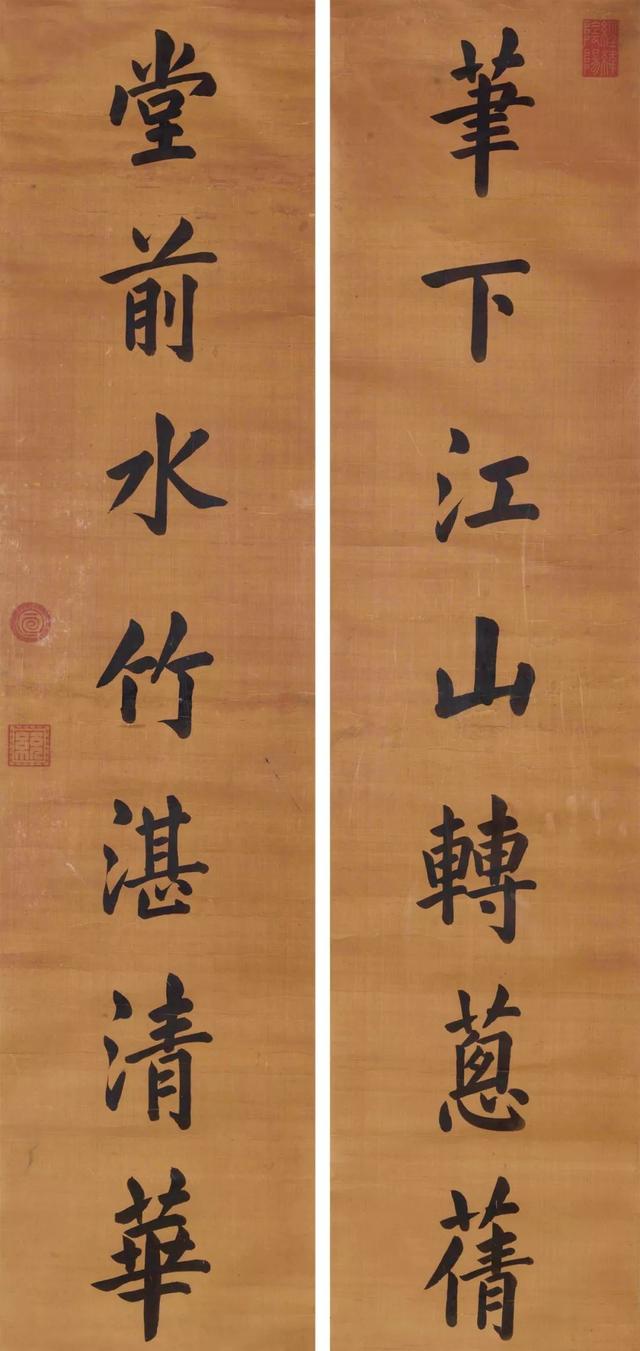 筆下江山轉蔥蒨
堂前水竹湛清華